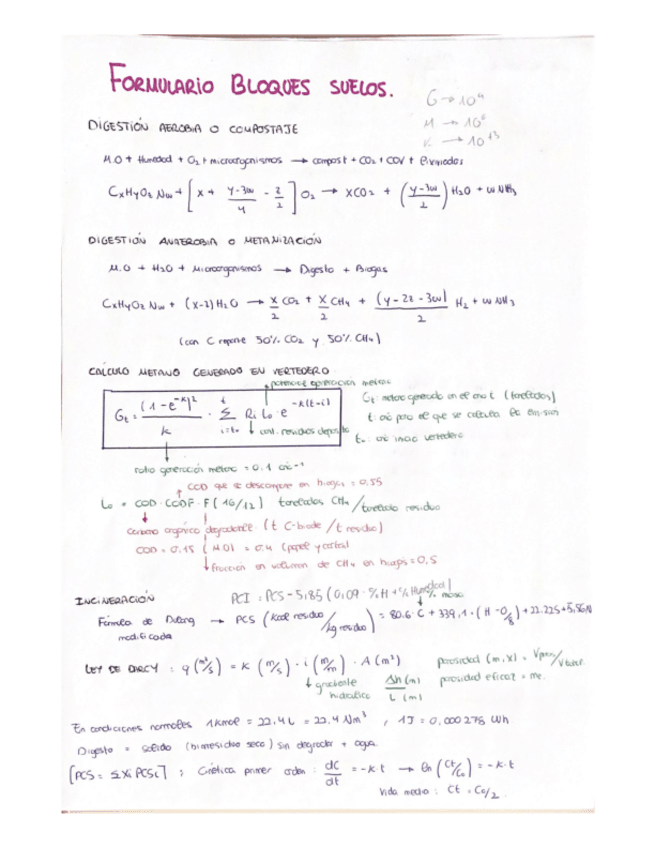 FORMULARIO BLOQUES SUELOS.
G → 10⁹
M → 10⁶
DIGESTIÓN AEROBIA O COMPOSTAJE
M.O + Humedad + O2 + microorganismos → compost + CO2 + COV +
CxHyOzNw + [x + y-3w/4 - z/2] O2 → xCO2 + (y-3w/2) H2O + w NH3
DIGESTIÓN ANAEROBIA O METANIZACIÓN
M.O + H2O + Microorganismos → Digesto + Biogas
CxHyOzNw + (x-z) H2O → x/2 CO2 + x/2 CH4 + (y-2z-3w)/2 H2 + w NH3
(con C reparte 50% CO2 y 50% CH4)
CÁLCULO METANO GENERADO EN VERTEDERO.
potencial generación metano
Gt = (1-e^-k)²/k · Σ Ri Lo · e^-k(t-i)
t
i=to
cant. residuos deposito
Gt: metano generado en el año t (toneladas)
t: año para el que se calcula la emisión
to: año inicio vertedero
ratio generación metano = 0.1 año⁻¹
COD que se descompone en biogas = 0.55
Lo = COD · CODF · F (16/12) toneladas CH4/tonelada residuo
Carbono orgánico degradable (t C-biode / t residuo)
COD = 0.15 (M.O) = 0.4 (papel y cartón)
fracción en volumen de CH4 en biogas = 0,5
INCINERACIÓN
PCI = PCS - 5,85 (0,09 · %H + % Humedad)
Fórmula de Dulong modificada → PCS (kcal residuo / kg residuo) = 80.6 · C + 339,1 · (H - O/8) + 22.22S + 5,56N
LEY DE DARCY : q (m³/s) = K (m/s) · i (m/m) · A (m²)
gradiente hidráulico Δh (m) / L (m)
porosidad (m, x) = Vporos/Vtotal.
porosidad eficaz = me.
En condiciones normales 1 kmol = 22.4 L = 22.4 Nm³ , 1J = 0,000278 Wh
Digesto = solido (bioresiduo seco) sin degradar + agua.
[PCS = ΣXi PCSi] ; Cinética primer orden : dC/dt = -k t → ln (Ct/Co) = -k · t
Vida media : Ct = Co/2.